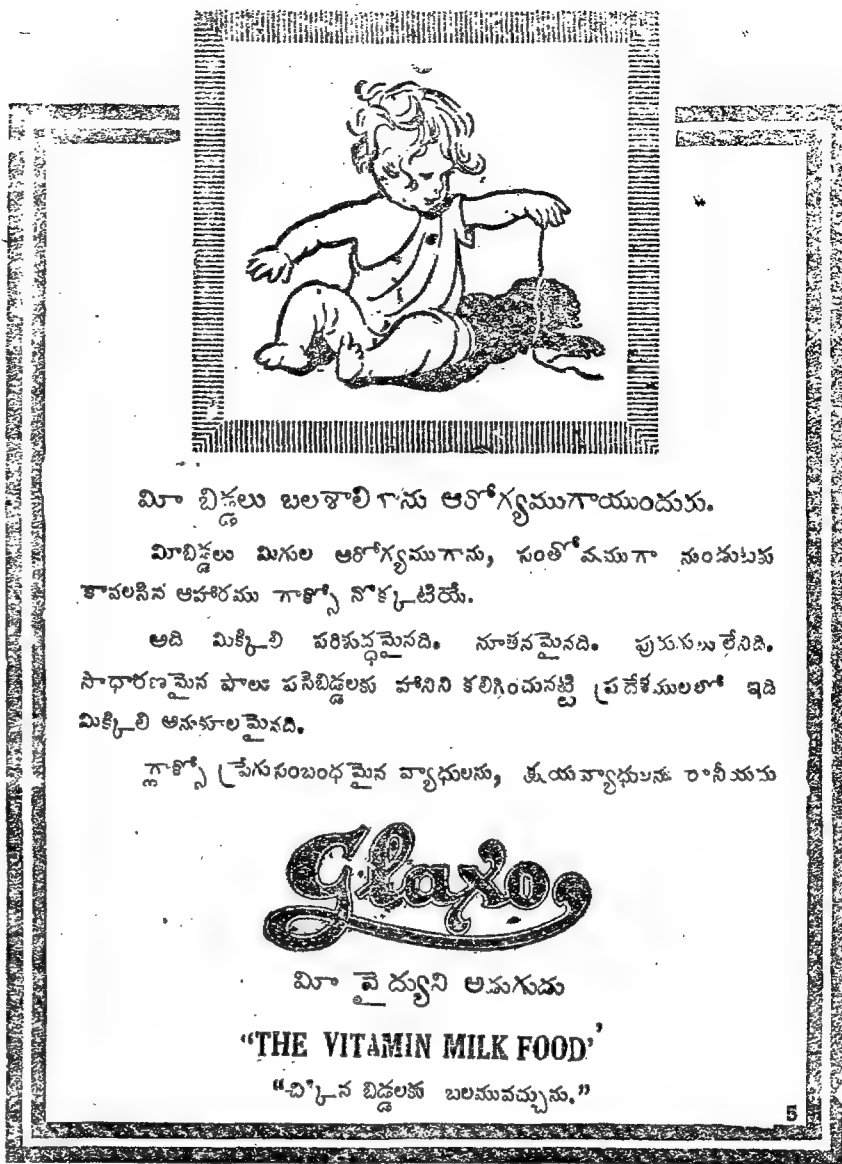 మీ బిడ్డలు బలశాలిగాను ఆరోగ్యముగాయుందురు.
మీబిడ్డలు మిగుల ఆరోగ్యముగాను, సంతోషముగా నుండుటకు
కావలసిన ఆహారము గ్లాక్సో నొక్కటియే.
అది మిక్కిలి పరిశుద్ధమైనది. నూతనమైనది. పురుగులు లేనిది.
సాధారణమైన పాలు పసిబిడ్డలకు హానిని కలిగించునట్టి ప్రదేశములలో ఇది
మిక్కిలి అనుకూలమైనది.
గ్లాక్సో ప్రేగుసంబంధమైన వ్యాధులను, క్షయవ్యాధులను రానీయను
Glaxo
మీ వైద్యుని అడుగుడు
"THE VITAMIN MILK FOOD"
"చిక్కిన బిడ్డలకు బలమువచ్చును."
5